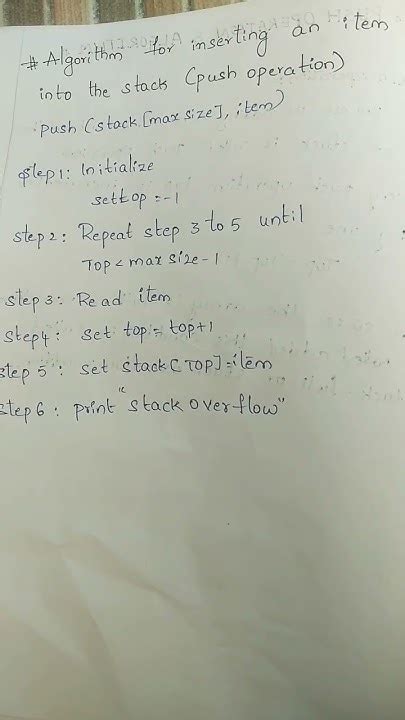 # Algorithm for inserting an item
into the stack (push operation)
Push (stack [max size], item)
Step1: Initialize
set top = -1
Step 2: Repeat step 3 to 5 until
Top < max size - 1
Step 3: Read item
Step4: set top = top+1
Step 5: set stack [TOP] = item
Step 6: print "stack overflow"